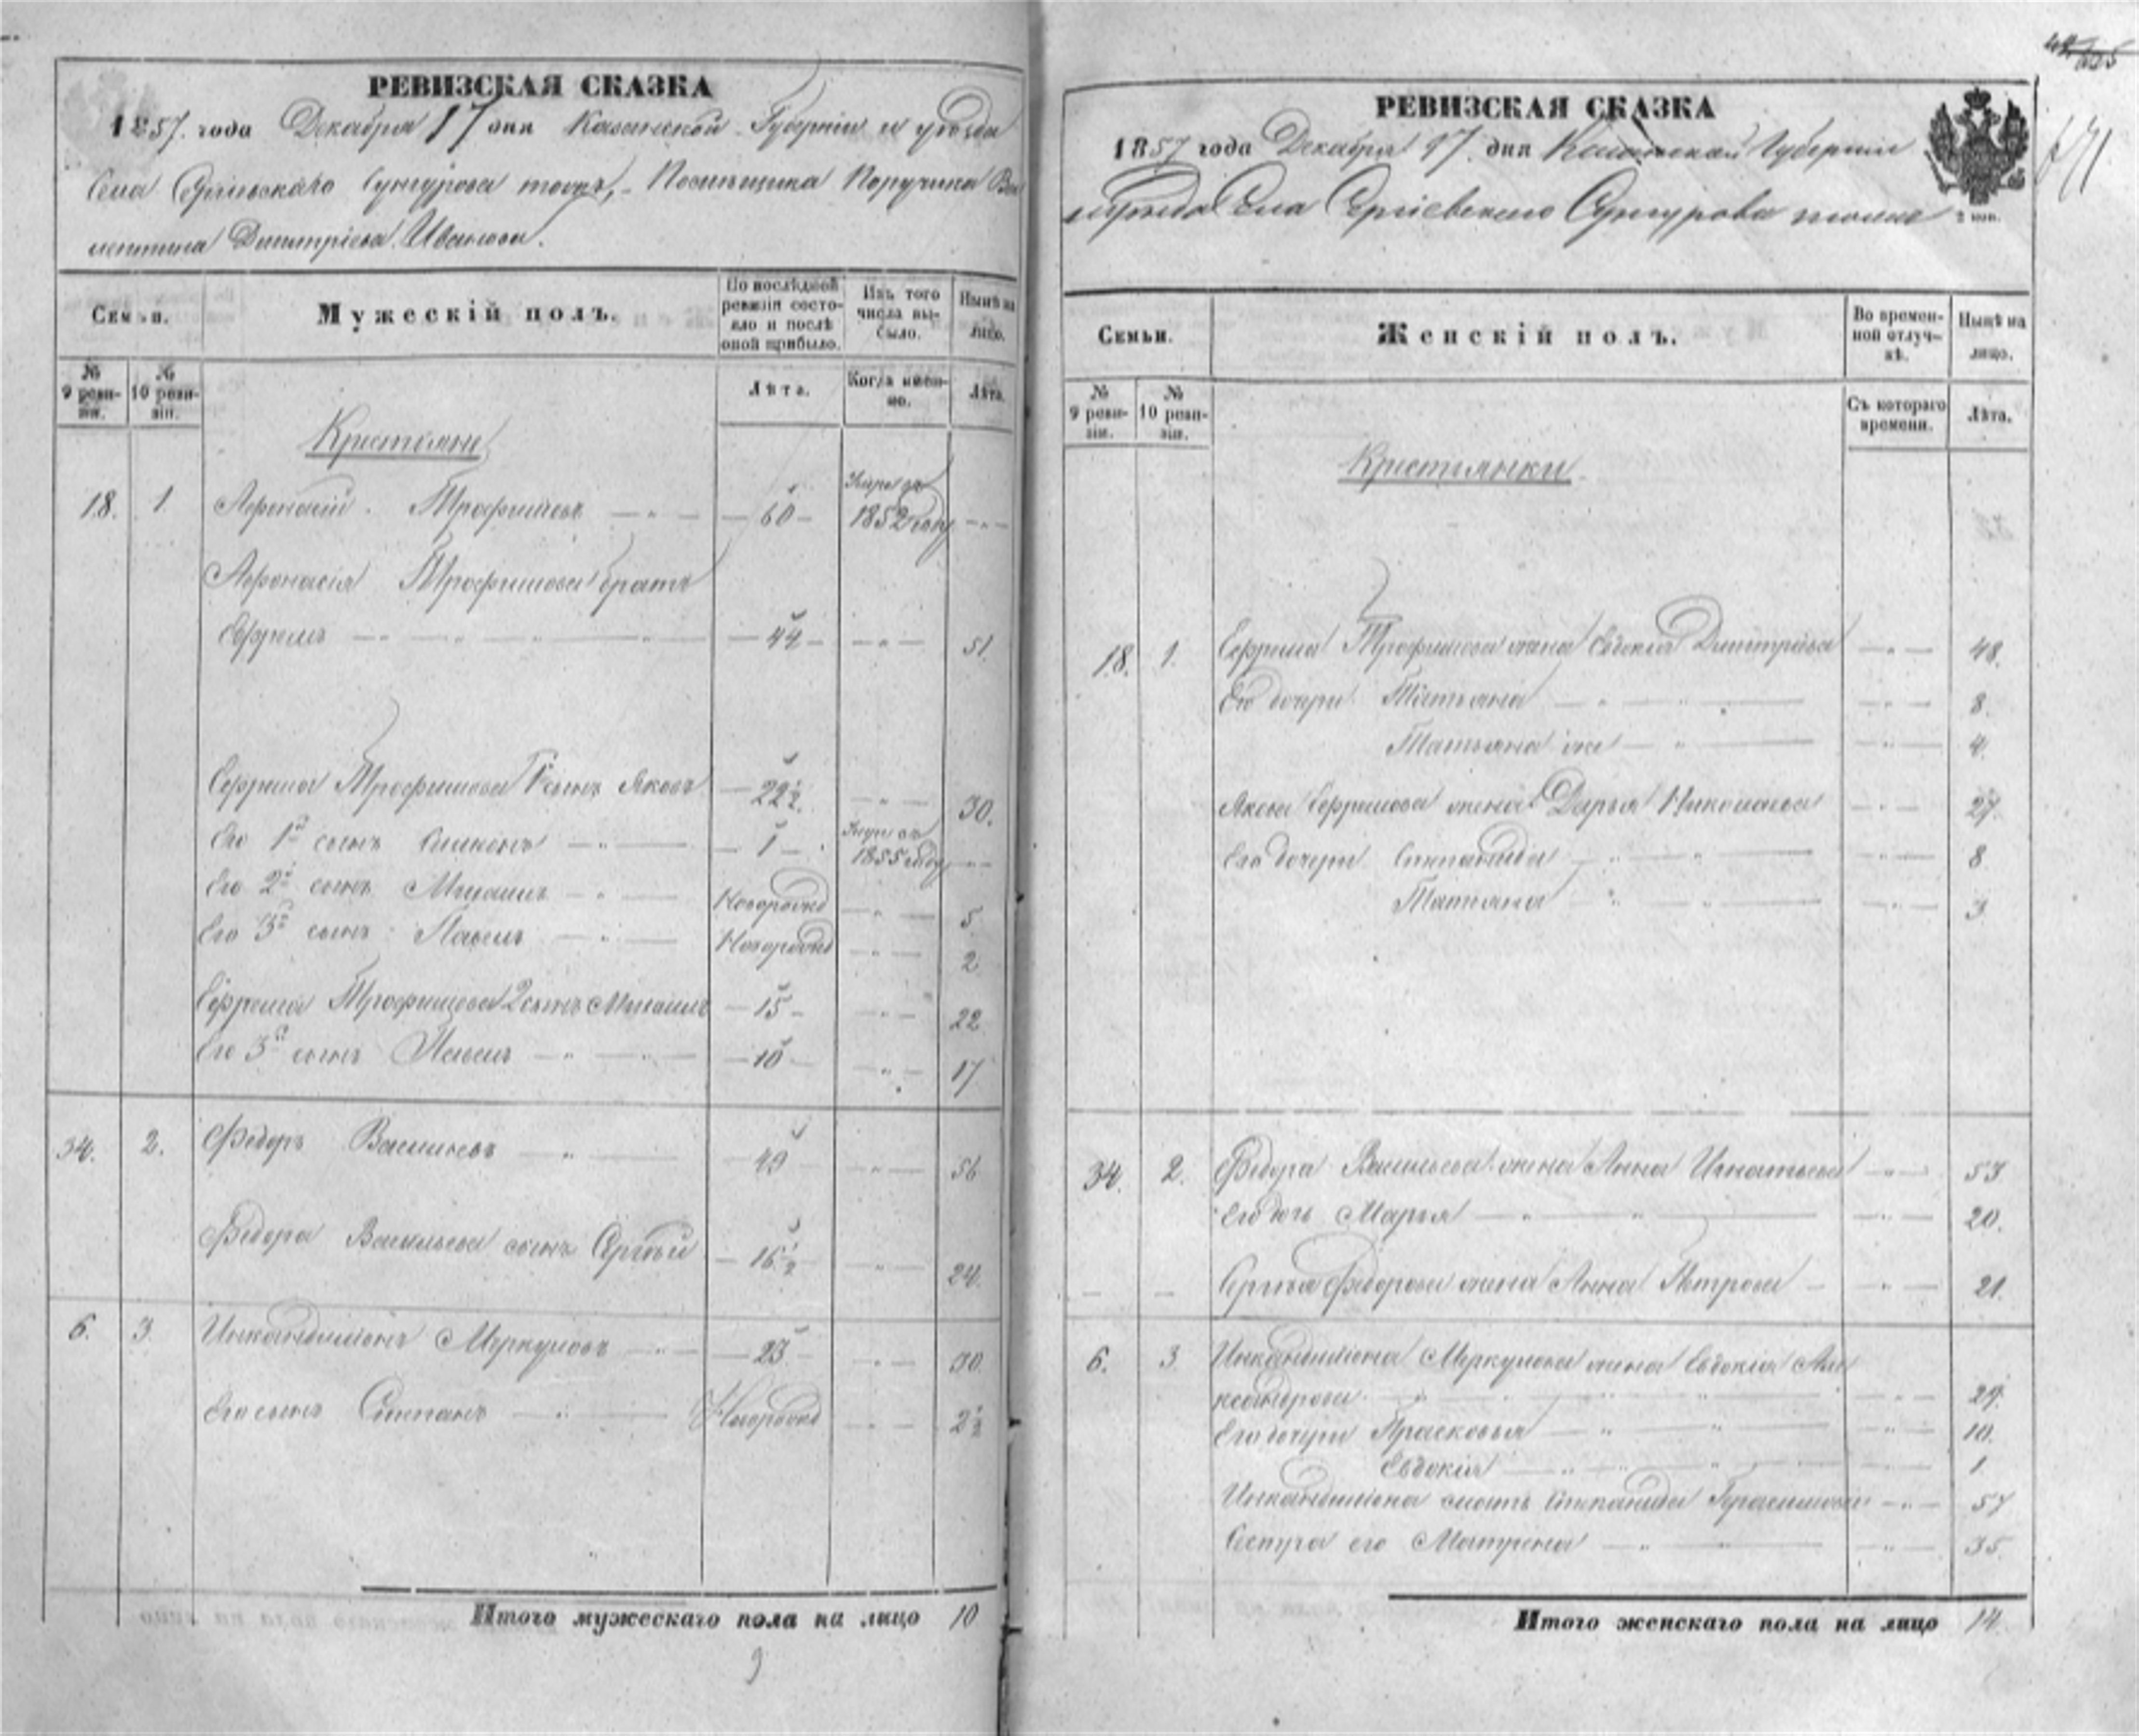 РЕВИЗСКАЯ СКАЗКА
1857. года Декабря 17 дня Казанской Губерніи и уѣзда
Села Сергіевскаго Сунгурова тожъ, Помѣщика Поручика Ва
лентина Дмитріева Иванова.
Семьи.
Мужескій полъ.
По послѣдней ревизіи состояло и послѣ оной прибыло.
Изъ того числа выбыло.
Нынѣ на лицо.
№ 9 ревизіи.
№ 10 ревизіи.
Лѣта.
Когда именно.
Лѣта.
Крестьяне
18. 1. Афонасій Трофимовъ — 60 — 1852 году
Афонасія Трофимова братъ
Ефремъ — 44 — 51.
Ефрема Трофимова 1 сынъ Яковъ — 22½ 30.
Его 1й сынъ Симионъ — 1 — 1855 году
Его 2й сынъ Михаилъ — Новорожд 5
Его 3й сынъ Павелъ — Новорожд 2
Ефрема Трофимова 2 сынъ Михаилъ — 15 — 22
Его 3й сынъ Павелъ — 10 — 17
34. 2. Федоръ Васильевъ — 49 56
Федора Васильева сынъ Сергѣй — 16½ 24.
6. 3. Меркуловъ — 23 — 30.
Его сынъ Степанъ — Новорожд 2½
Итого мужескаго пола на лицо 10
9
РЕВИЗСКАЯ СКАЗКА
1857 года Декабря 17. дня Казанской Губерніи
и уѣзда Села Сергіевскаго Сунгурова тожъ
2 коп.
Семьи.
Женскій полъ.
Во временной отлучкѣ.
Нынѣ на лицо.
№ 9 ревизіи.
№ 10 ревизіи.
Съ котораго времени.
Лѣта.
Крестьянки
18. 1. Ефрема Трофимова жена Евдокія Дмитріева — 48.
Его дочери Татьяна — 8.
Татьяна же — 4.
Якова Ефремова жена Дарья Николаева — 27.
Его дочери Степанида — 8
Татьяна — 3
34. 2. Федора Васильева жена Анна Игнатьева — 53
Его дочь Марья — 20.
Сергѣя Федорова жена Анна Петрова — 21.
6. 3. Меркулова жена Евдокія Але
ксандрова — 29.
Его дочери Прасковья — 10.
Евдокія — 1
мать Степанида Герасимова — 57
Сестра его Матрена — 35.
Итого женскаго пола на лицо 14.